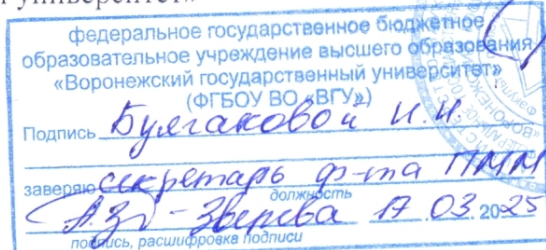 университет»
федеральное государственное бюджетное
образовательное учреждение высшего образования
«Воронежский государственный университет»
(ФГБОУ ВО «ВГУ»)
Подпись Булгаковой И.Н.
заверяю секретарь ф-та ПММ
должность
Зверева 17 03. 2025
подпись, расшифровка подписи